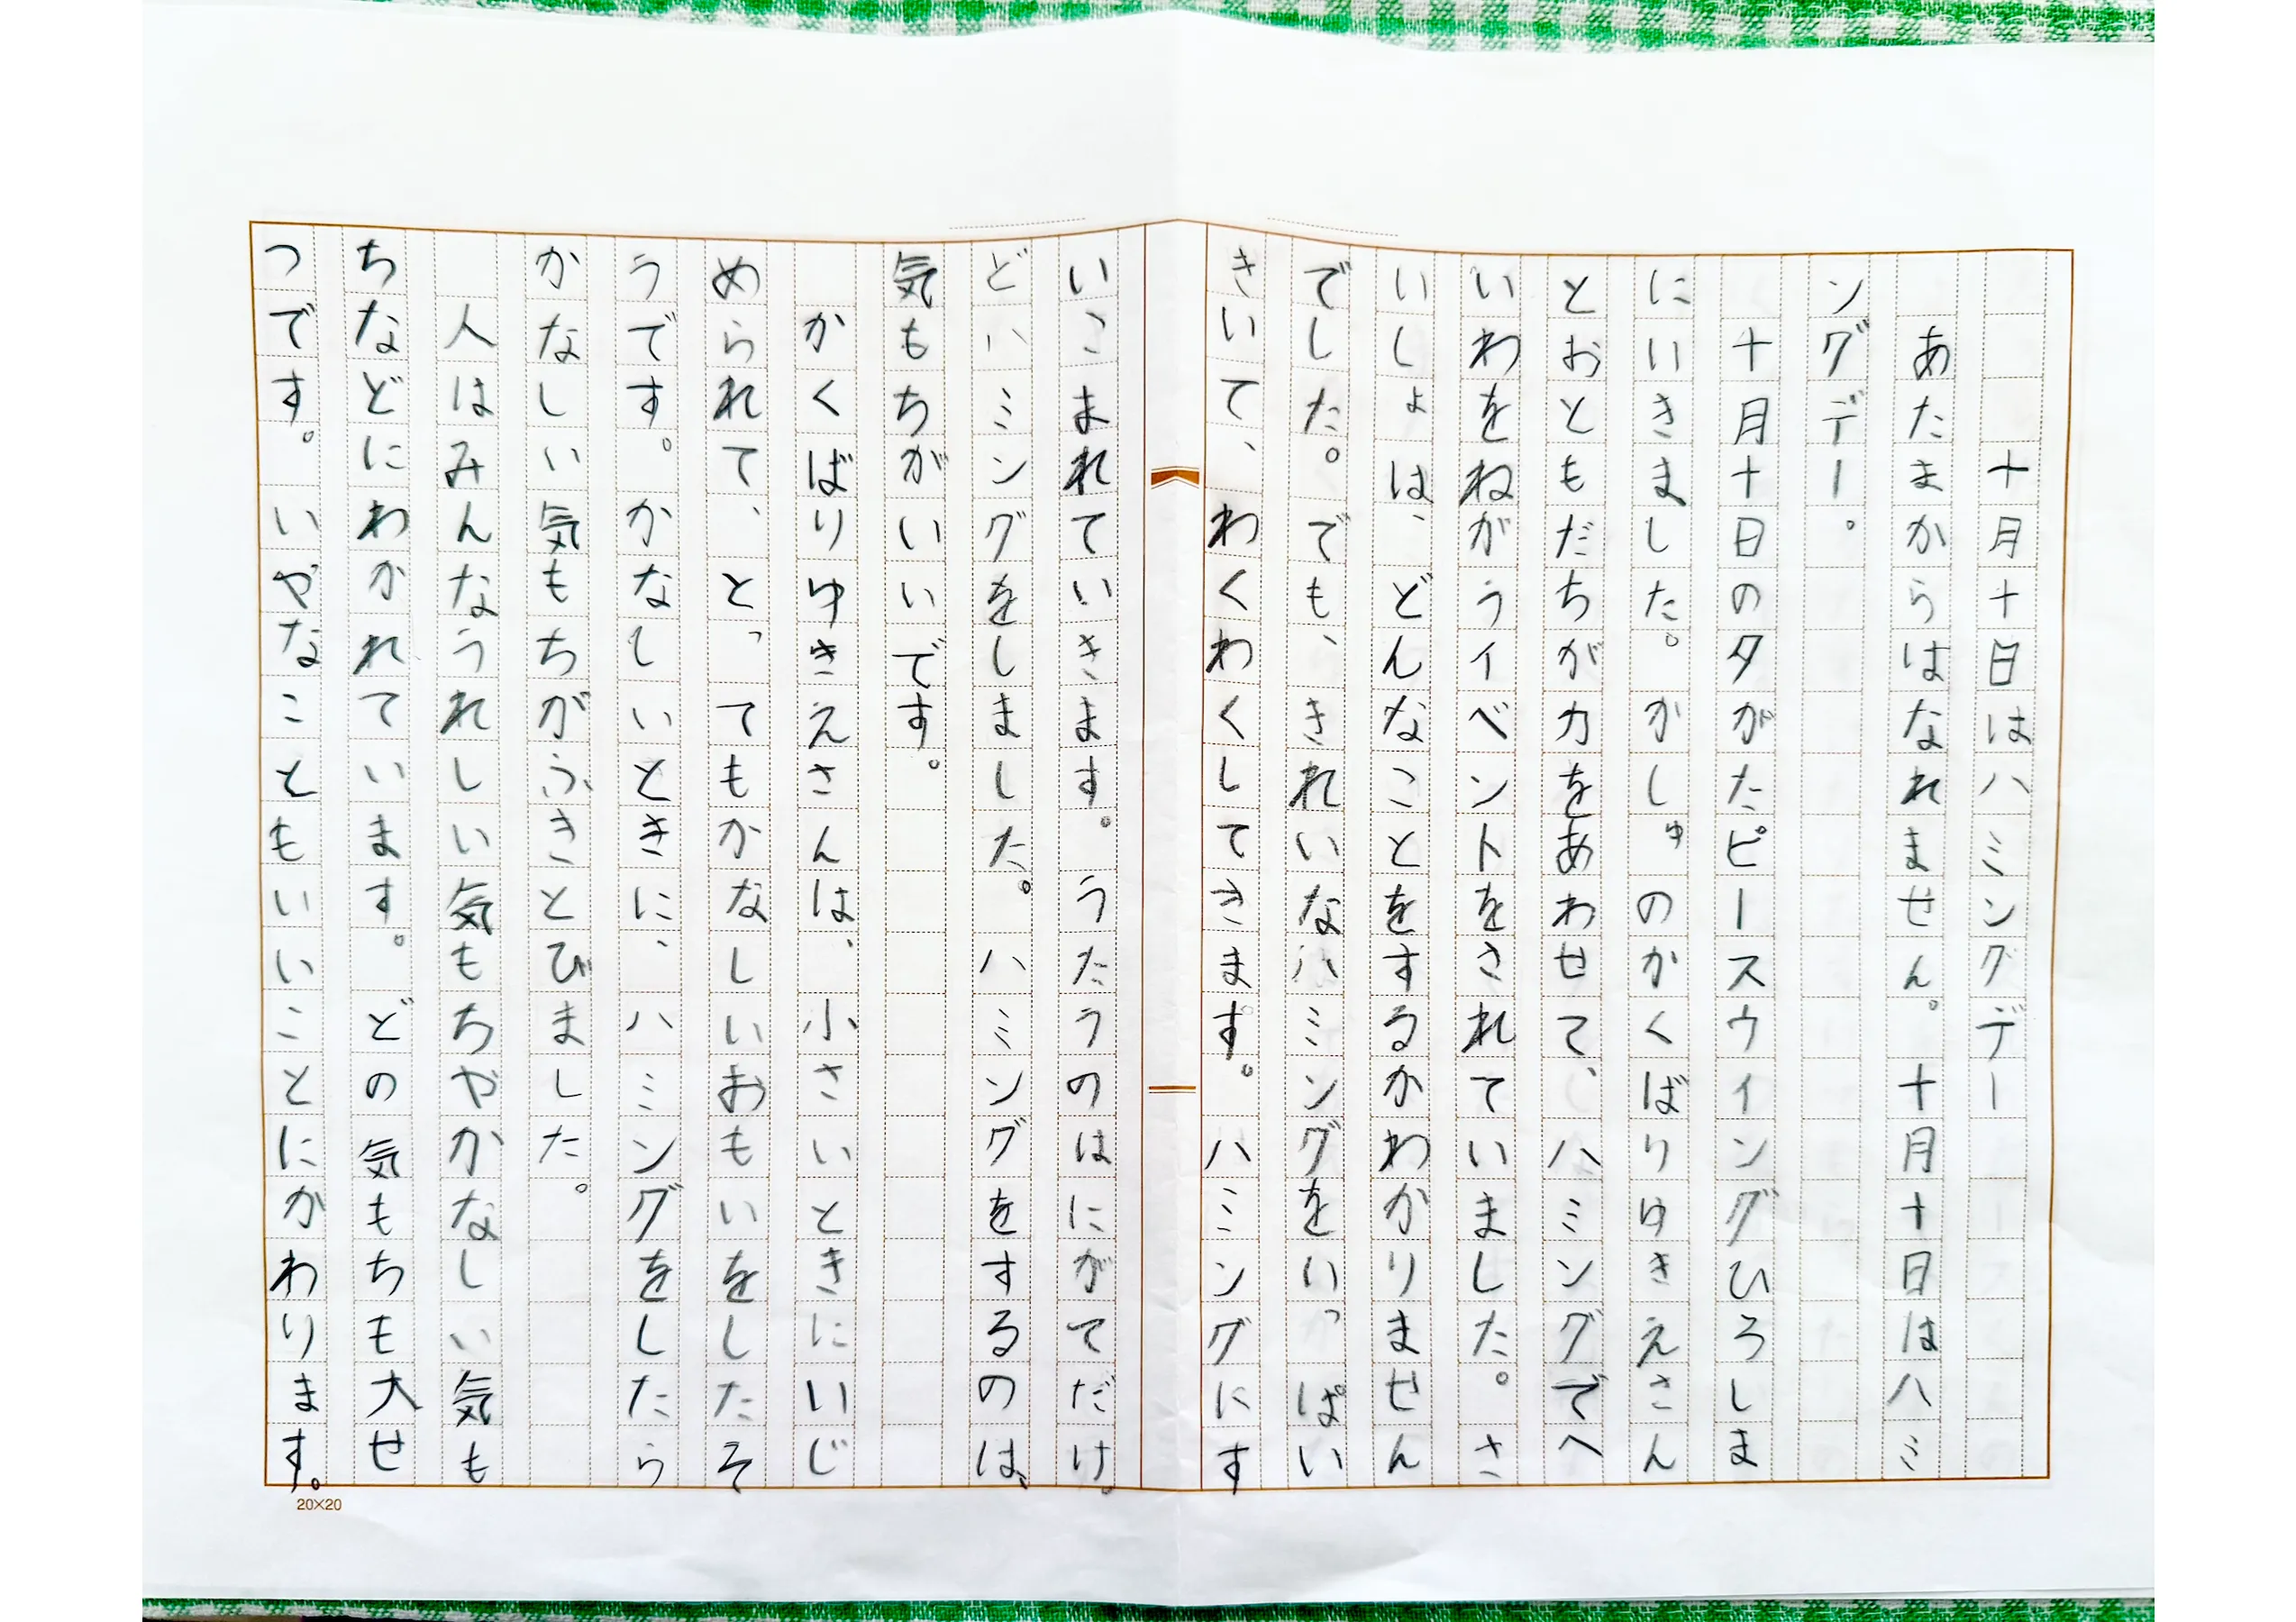 十月十日はハミングデー
あたまからはなれません。十月十日はハミ
ングデー。
十月十日の夕がたピースウイングひろしま
にいきました。かしゅのかくばりゆきえさん
とおともだちが力をあわせて、ハミングでへ
いわをねがうイベントをされていました。さ
いしょは、どんなことをするかわかりません
でした。でも、きれいなハミングをいっぱい
きいて、わくわくしてきます。ハミングにす
いこまれていきます。うたうのはにがてだけ
どハミングをしました。ハミングをするのは、
気もちがいいです。
かくばりゆきえさんは、小さいときにいじ
められて、とってもかなしいおもいをしたそ
うです。かなしいときに、ハミングをしたら
かなしい気もちがふきとびました。
人はみんなうれしい気もちやかなしい気も
ちなどにわかれています。どの気もちも大せ
つです。いやなこともいいことにかわります。
20×20